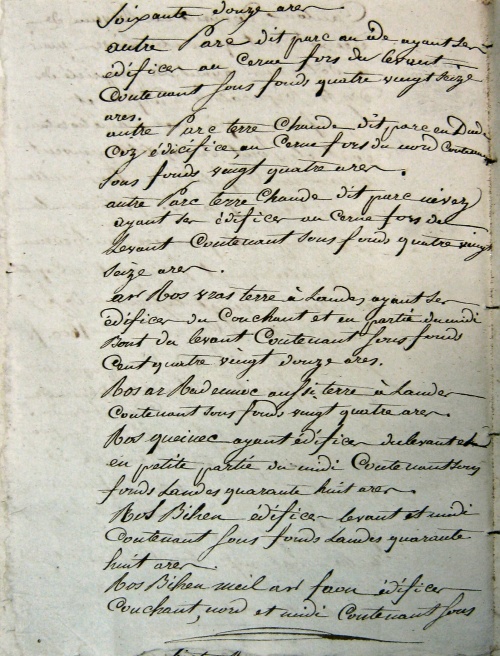 Soixante douze ares
autre Parc dit parc an ode ayant ses
édifices au Cerne fors du levant
Contenant sous fonds quatre vingt seize
ares.
autre Parc terre Chaude dit parc en
Coz édifice au Cerne fors du nord Contenant
sous fonds vingt quatre ares.
autre Parc terre Chaude dit parc nevez
ayant ses édifices au Cerne fors du
Levant Contenant sous fonds quatre vingt
seize ares.
ar Ros vras terre à Landes ayant ses
édifices du Couchant et en partie du midi
Bout du levant Contenant sous fonds
Cent quatre vingt douze ares.
Ros ar aussi terre à Landes
Contenant sous fonds vingt quatre ares.
Ros queinec ayant édifices du levant et
en petite partie du midi Contenant sous
fonds Landes quarante huit ares.
Ros Bihen édifices levant et midi
Contenant sous fonds Landes quarante
huit ares.
Ros Bihen meil ar faou édifices
Couchant, nord et midi Contenant sous